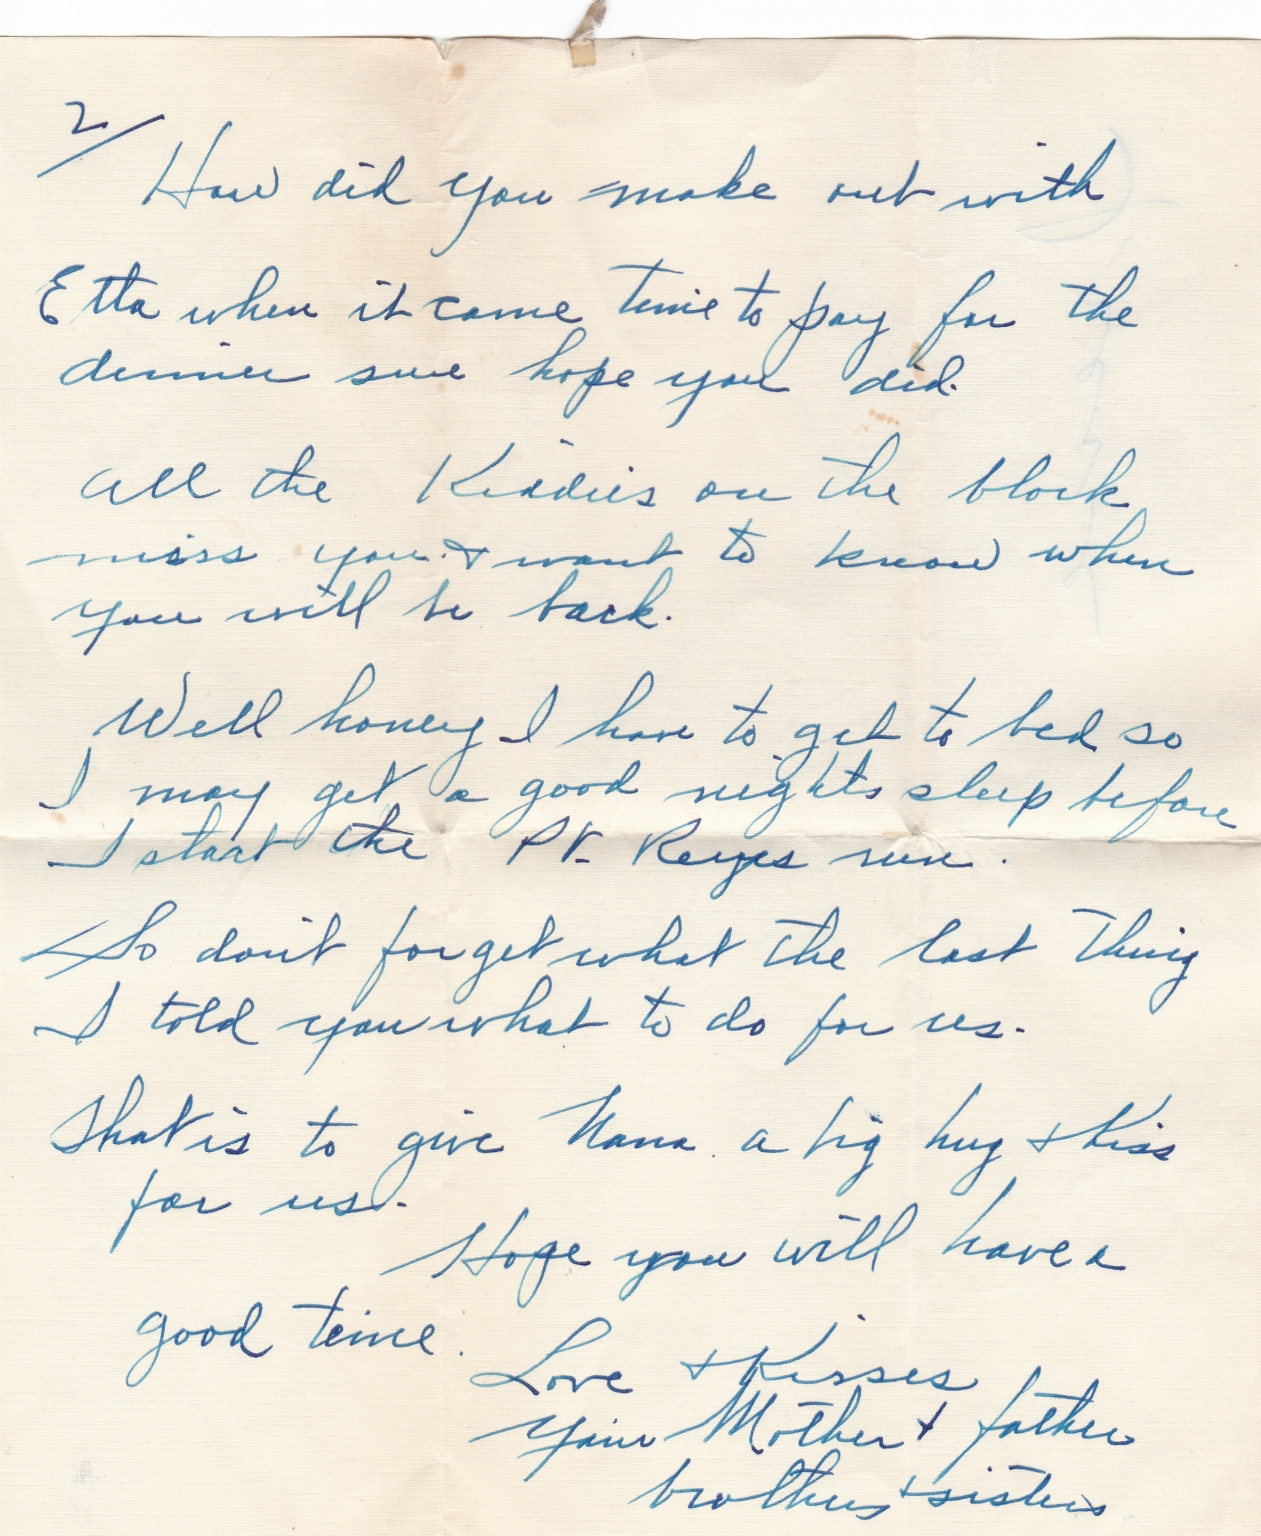 2/
How did you make out with
Etta when it came time to pay for the
dinner sure hope you did.
All the Kiddies on the block
miss you & want to know when
you will be back.
Well honey I have to get to bed so
I may get a good nights sleep before
I start the Pt. Reyes run.
So don't forget what the last thing
I told you what to do for us.
That is to give Nana a big hug & Kiss
for us.
Hope you will have a
good time.
Love & Kisses
Your Mother & father
brothers & sisters